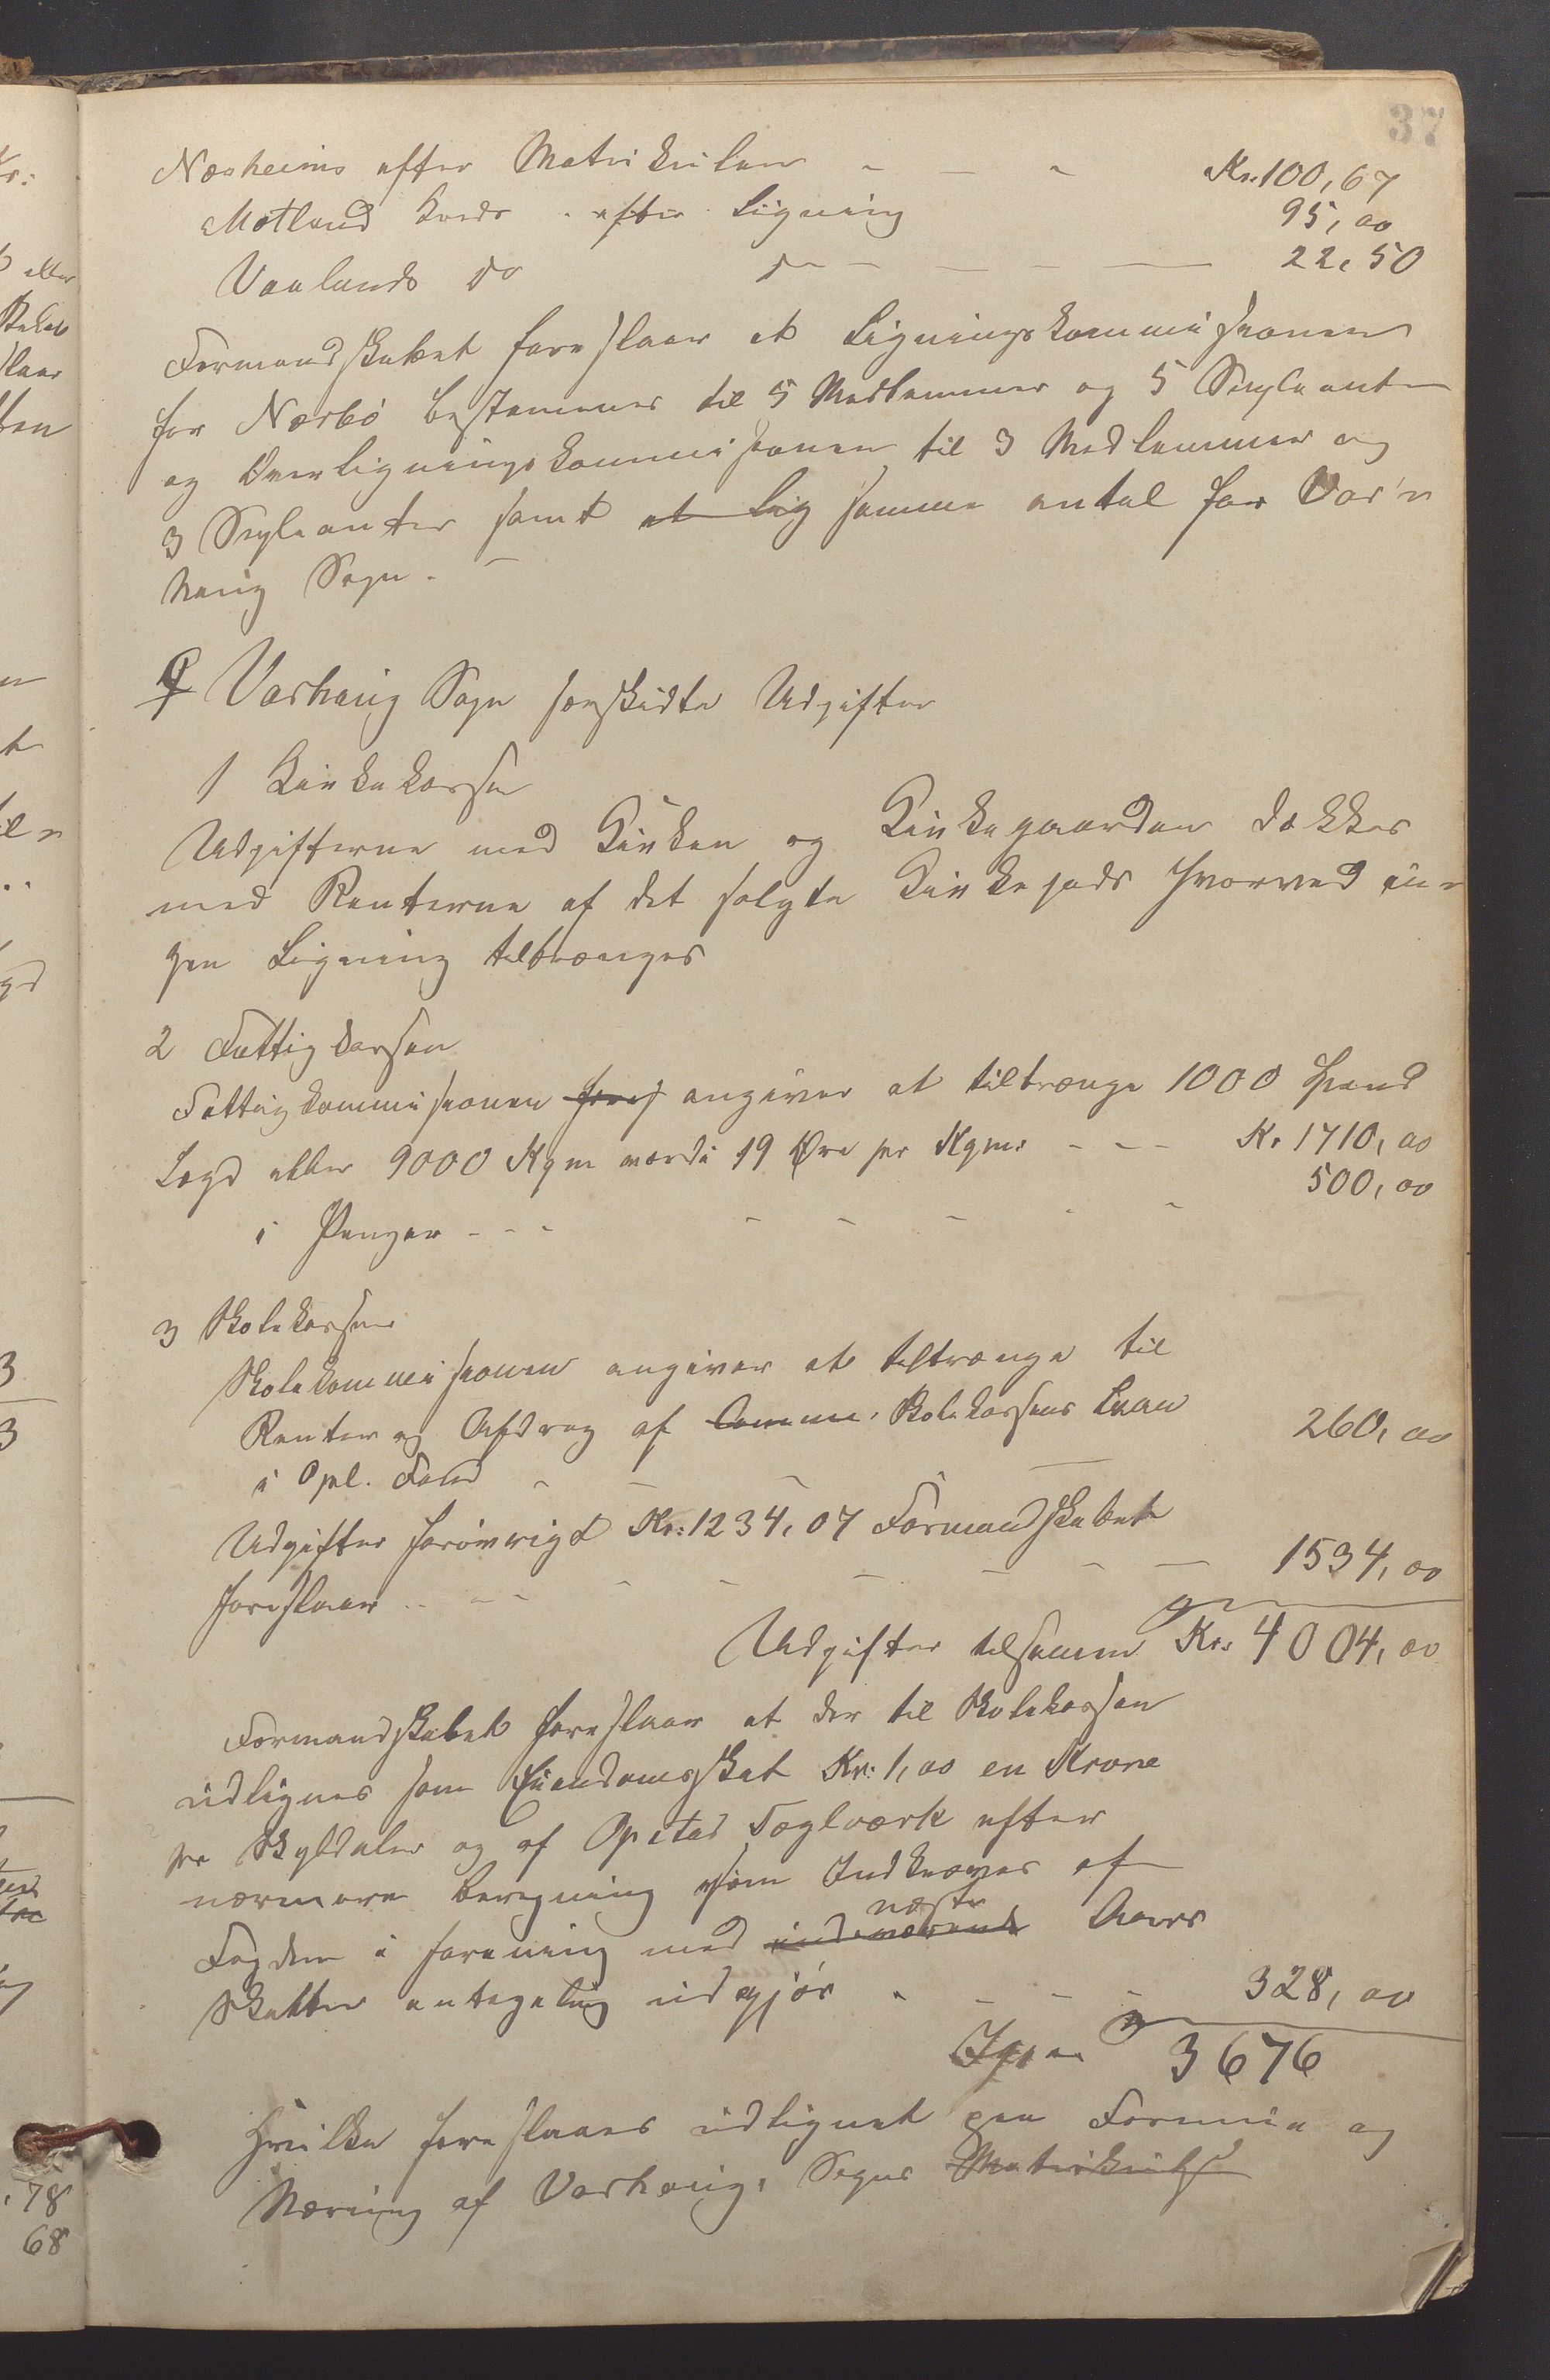 37
Nærheims efter Matrikulen - - - Kr. 100,67
Motland Kreds . efter Ligning 95,00
Vaulands do do - - - - 22,50
Formandskabet foreslaar at Ligningskommisionen
for Nærbö bestemmes til 5 Medlemmer og 5 Supleanter
og Overligningskommisionen til 3 Medlemmer og
3 Supleanter samt at lig samme antal for Var-
haug Sogn. -
C Varhaug Sogn særskildte Udgifter
1 Kirkekassen
Udgifterne med Kirken og Kirkegaarden dækkes
med Renterne af det solgte Kirkejords hvorved in-
gen Ligning tiltrænges
2 Fattigkassen
Fattigkommisionen fores angiver at tiltrænge 1000 Spand
Lægd eller 9000 Kgm værdi 19 Øre pr Kgm: - - - Kr 1710,00
i Penger - - - - - - - - 500,00
3 Skolekassen
Skolekommisionen angiver at tiltrænge til
Renter og Afdrag af Commu. Skolekassens Laan
i Opl. Fond - - - 260,00
Udgifter forövrigt Kr: 1234,07 Formandskabet
foreslaar - - - - - - - 1534,00
Udgifter tilsamm Kr: 4004,00
Formandskabet foreslaar at der til Skolekassen
udlignes som Eiendomsskat Kr: 1,00 en Krone
pr Skyldaler og af Opstad Teglværk efter
nærmere beregning som Indkræves af
næste
Fogden i forening med indeværende Aars
Skatter antagelig udgjör - - - - 328,00
Igjen 3676
Hvilke foreslaaes udlignet paa Formue og
Næring af Varhaug, Sogns Matrikuls